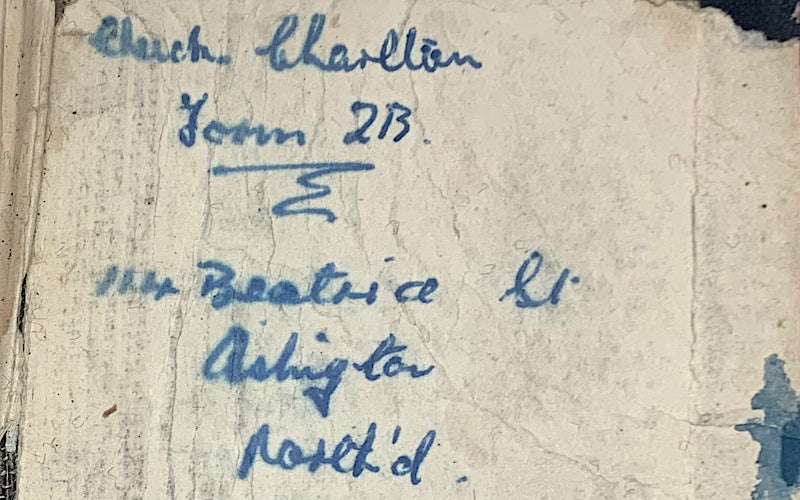 Chuck. Charlton
Form 2B.
114 Beatrice St
Ashington
North'd.